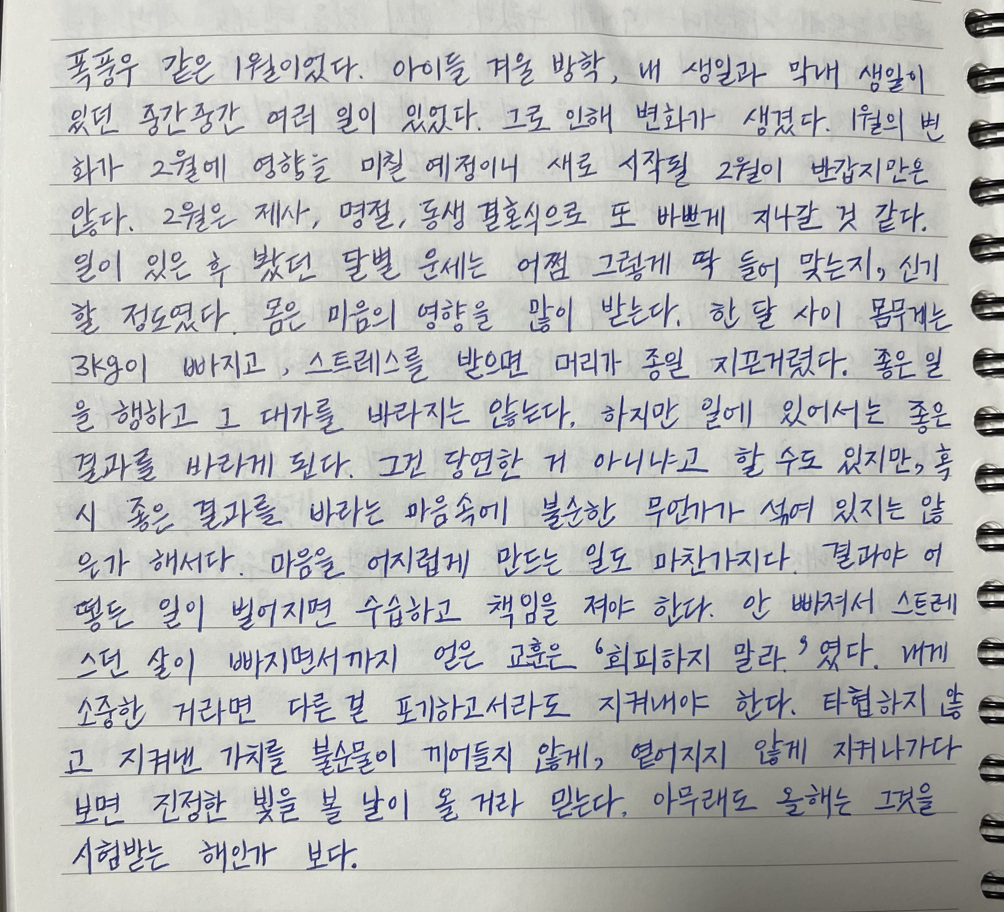 폭풍우 같은 1월이었다. 아이들 겨울 방학, 내 생일과 막내 생일이
있던 중간중간 여러 일이 있었다. 그로 인해 변화가 생겼다. 1월의 변
화가 2월에 영향을 미칠 예정이니 새로 시작될 2월이 반갑지만은
않다. 2월은 제사, 명절, 동생 결혼식으로 또 바쁘게 지나갈 것 같다.
일이 있은 후 봤던 달별 운세는 어쩜 그렇게 딱 들어 맞는지, 신기
할 정도였다. 몸은 마음의 영향을 많이 받는다. 한 달 사이 몸무게는
3kg이 빠지고, 스트레스를 받으면 머리가 종일 지끈거렸다. 좋은 일
을 행하고 그 대가를 바라지는 않는다. 하지만 일에 있어서는 좋은
결과를 바라게 된다. 그건 당연한 거 아니냐고 할 수도 있지만, 혹
시 좋은 결과를 바라는 마음속에 불순한 무언가가 섞여 있지는 않
은가 해서다. 마음을 어지럽게 만드는 일도 마찬가지다. 결과야 어
떻든 일이 벌어지면 수습하고 책임을 져야 한다. 안 빠져서 스트레
스던 살이 빠지면서까지 얻은 교훈은 '회피하지 말라.'였다. 내게
소중한 거라면 다른 걸 포기하고서라도 지켜내야 한다. 타협하지 않
고 지켜낸 가치를 불순물이 끼어들지 않게, 옅어지지 않게 지켜나가다
보면 진정한 빛을 볼 날이 올 거라 믿는다. 아무래도 올해는 그것을
시험받는 해인가 보다.